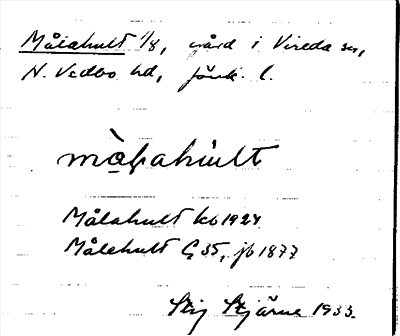 Målahult 1/8, gård i Vireda sn,
N. Vedbo hd, Jönk. l.
màlahult
Målahult kb 1924
Målehult G 35, jb 1877
Stig Stjärne 1933.